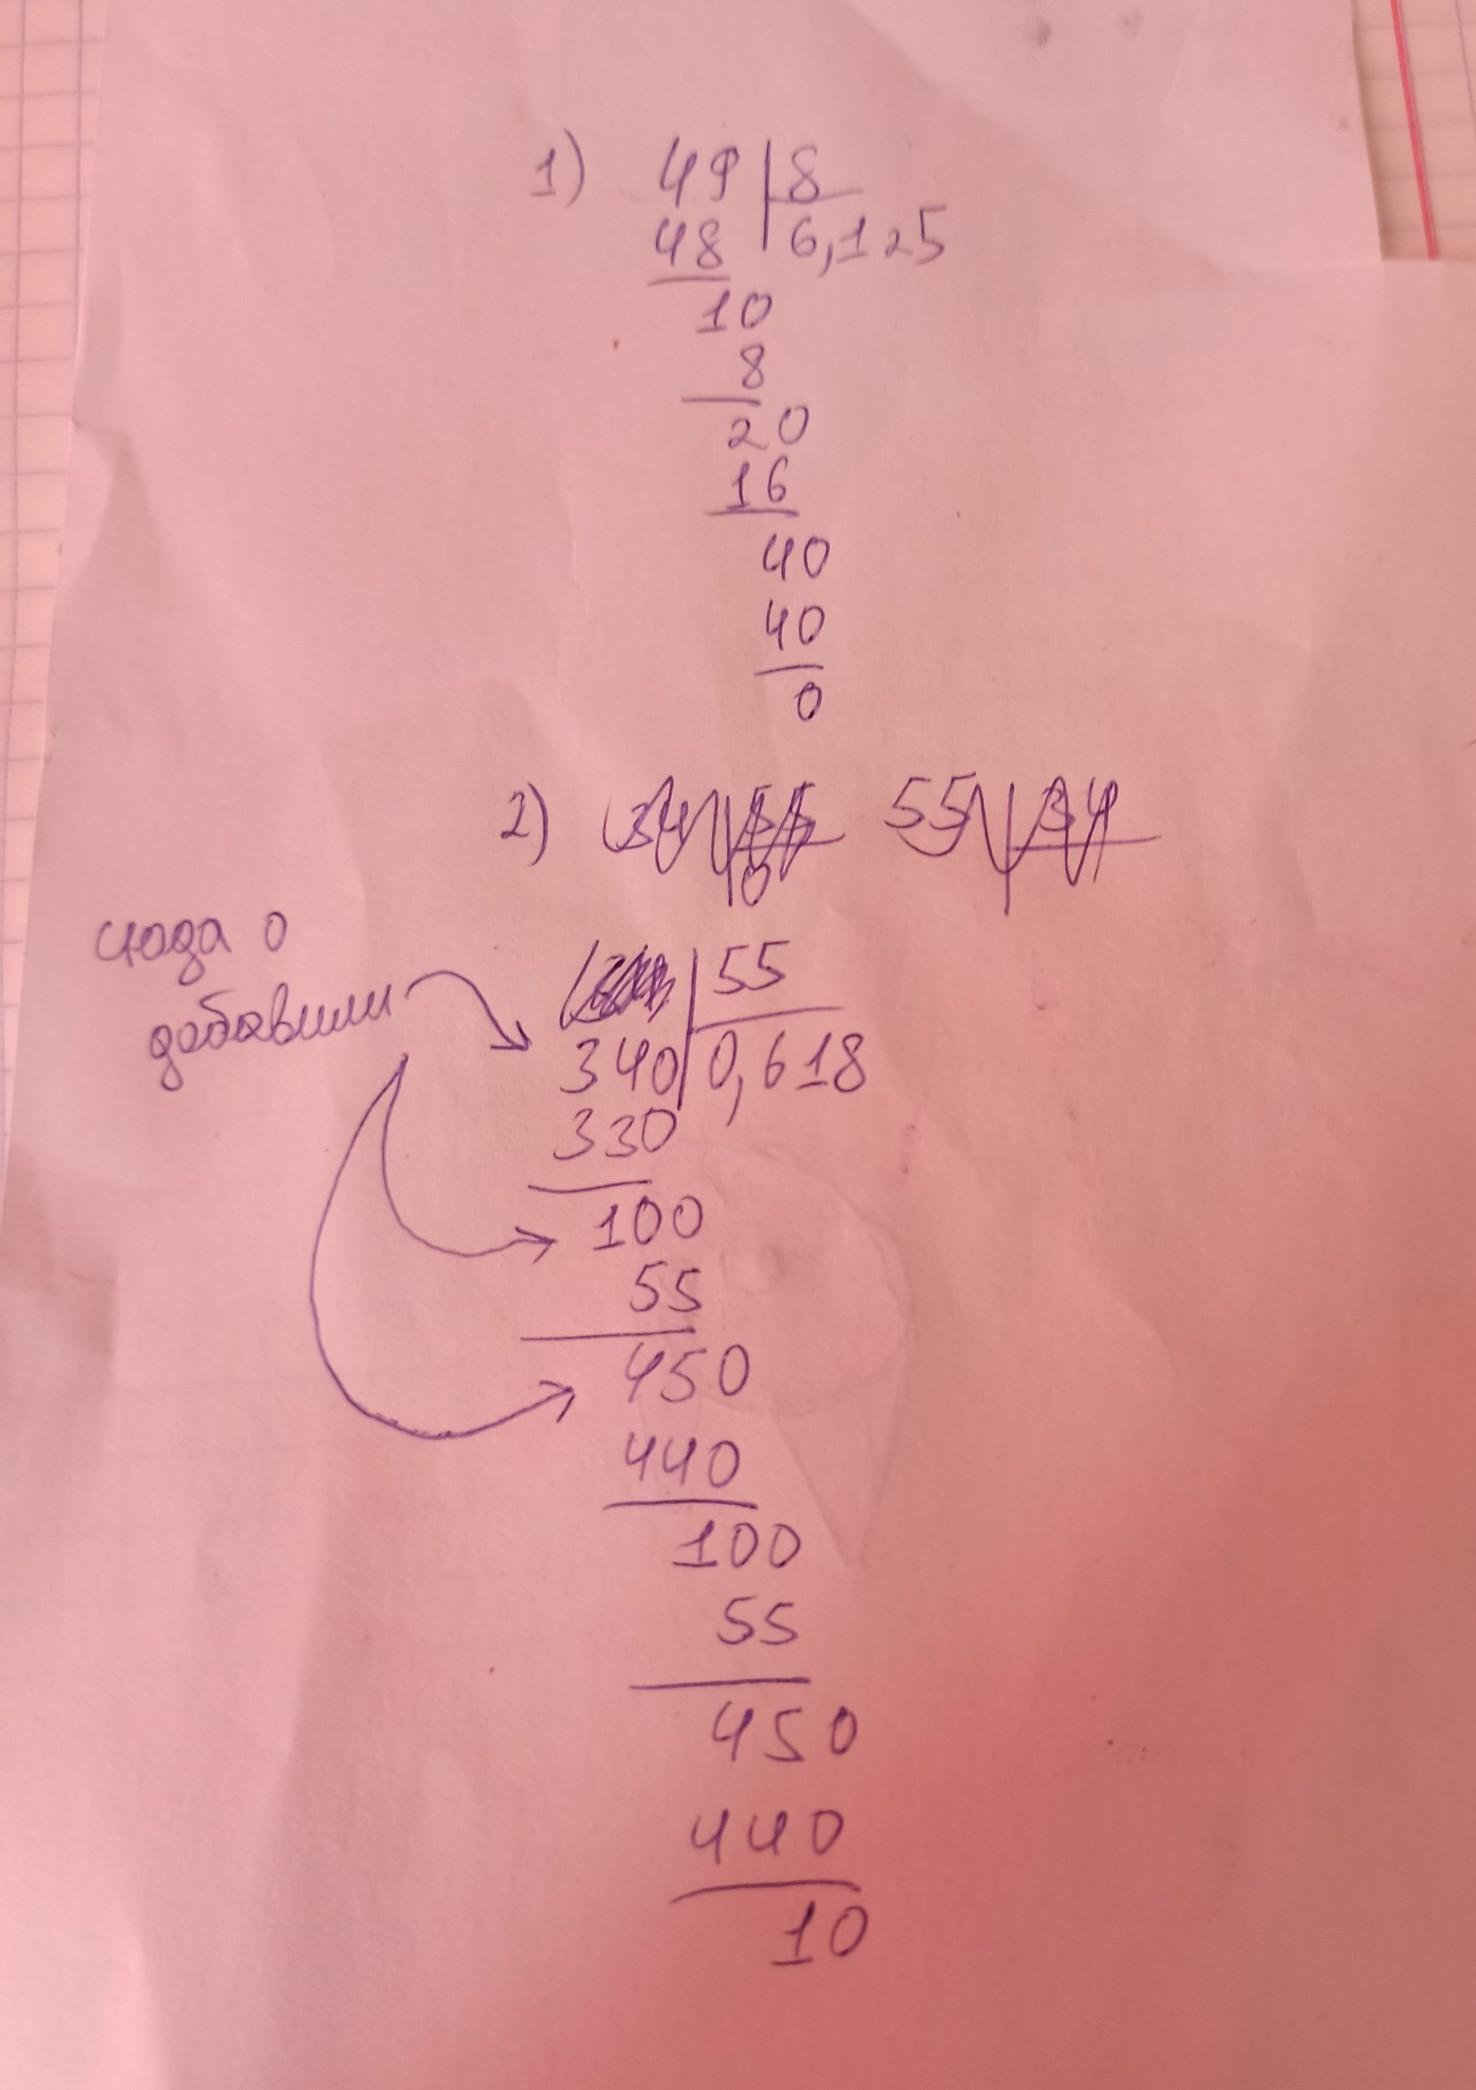 1) 49 | 8
48 | 6,125
10
8
20
16
40
40
0
2) 34 | 55 55 | 34
0
сюда 0
добавили
55
340 | 0,618
330
100
55
450
440
100
55
450
440
10